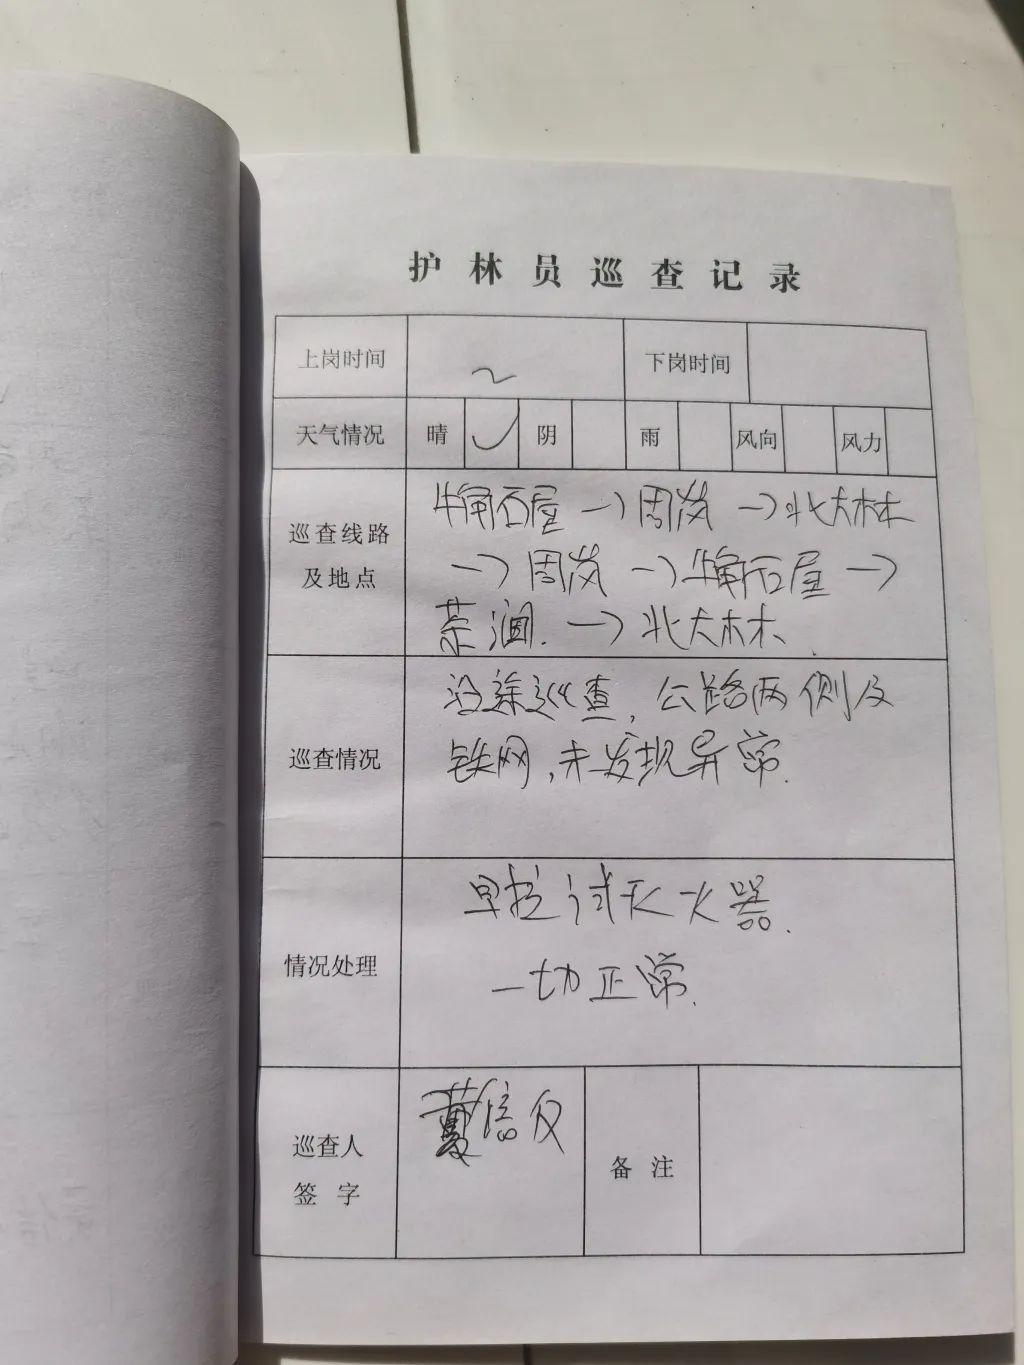 护林员巡查记录
上岗时间 ~ 下岗时间
天气情况 晴 ✓ 阴 雨 风向 风力
巡查线路及地点
牛角石屋→周岗→北大林
→周岗→牛角石屋→
茶涧.→北大林.
巡查情况
沿途巡查,公路两侧及
铁网,未发现异常.
情况处理
试灭火器.
一切正常.
巡查人签字
备注